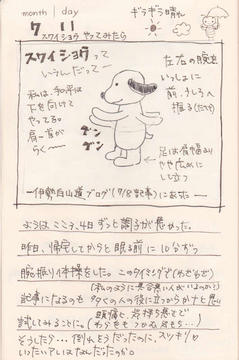 month | day
7 11
ギラギラ晴れ
スワイショウ やってみたら
スワイショウって
いうんだって〜
私は、和式は
下を向けて
やってる。
肩・首が
らく〜
ブン
ブン
左右の腕を
いっしょに
前、うしろへ
振る(だけ)
足は肩幅より
やや広めに
して立つ
ー伊勢白山道ブログ(7/8記事)にあったー
ようはここ3、4日ずっと調子が悪かった。
昨日、帰宅してからと眠る前に10分ずつ
腕振り体操をした。このタイミングで
記事になるのも多くの人の役に立つからかなと思い
試してみることに。
頭痛と、気持ち悪くて
そうしたら…倒れそうだったのに、スッキリ!!
いたいアレはなんだったのか。